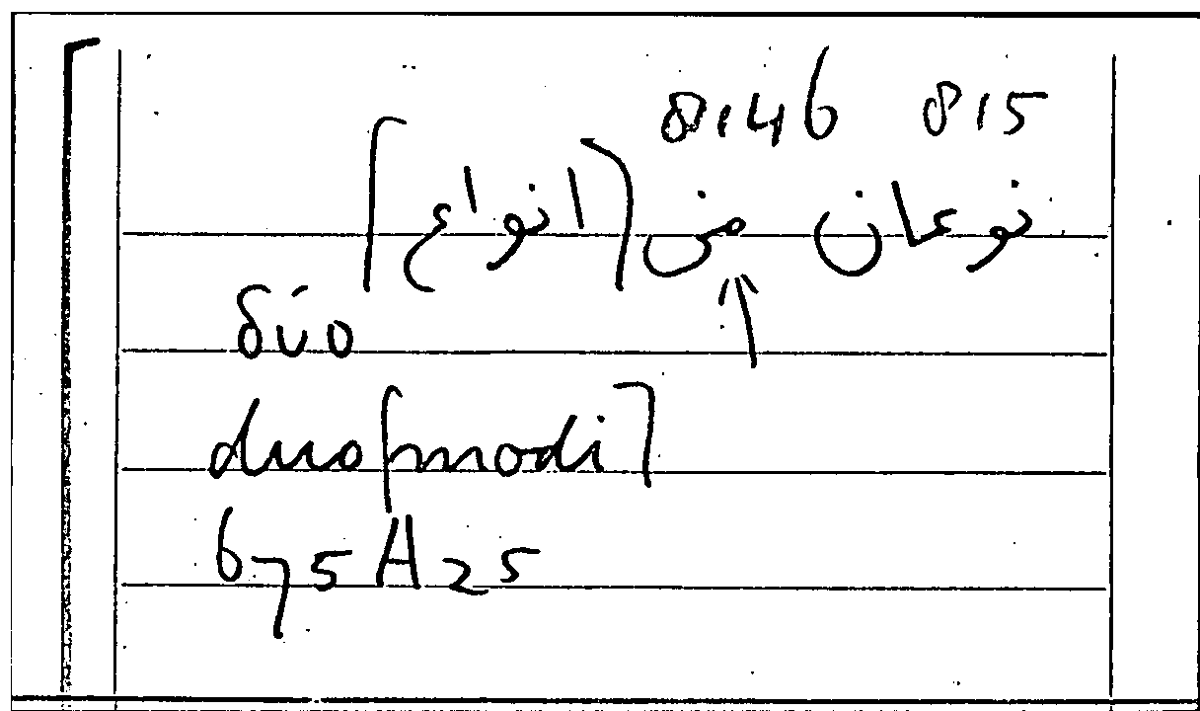 8,46 815
نوعان من [انواع]
δύο
duo [modi]
675A25